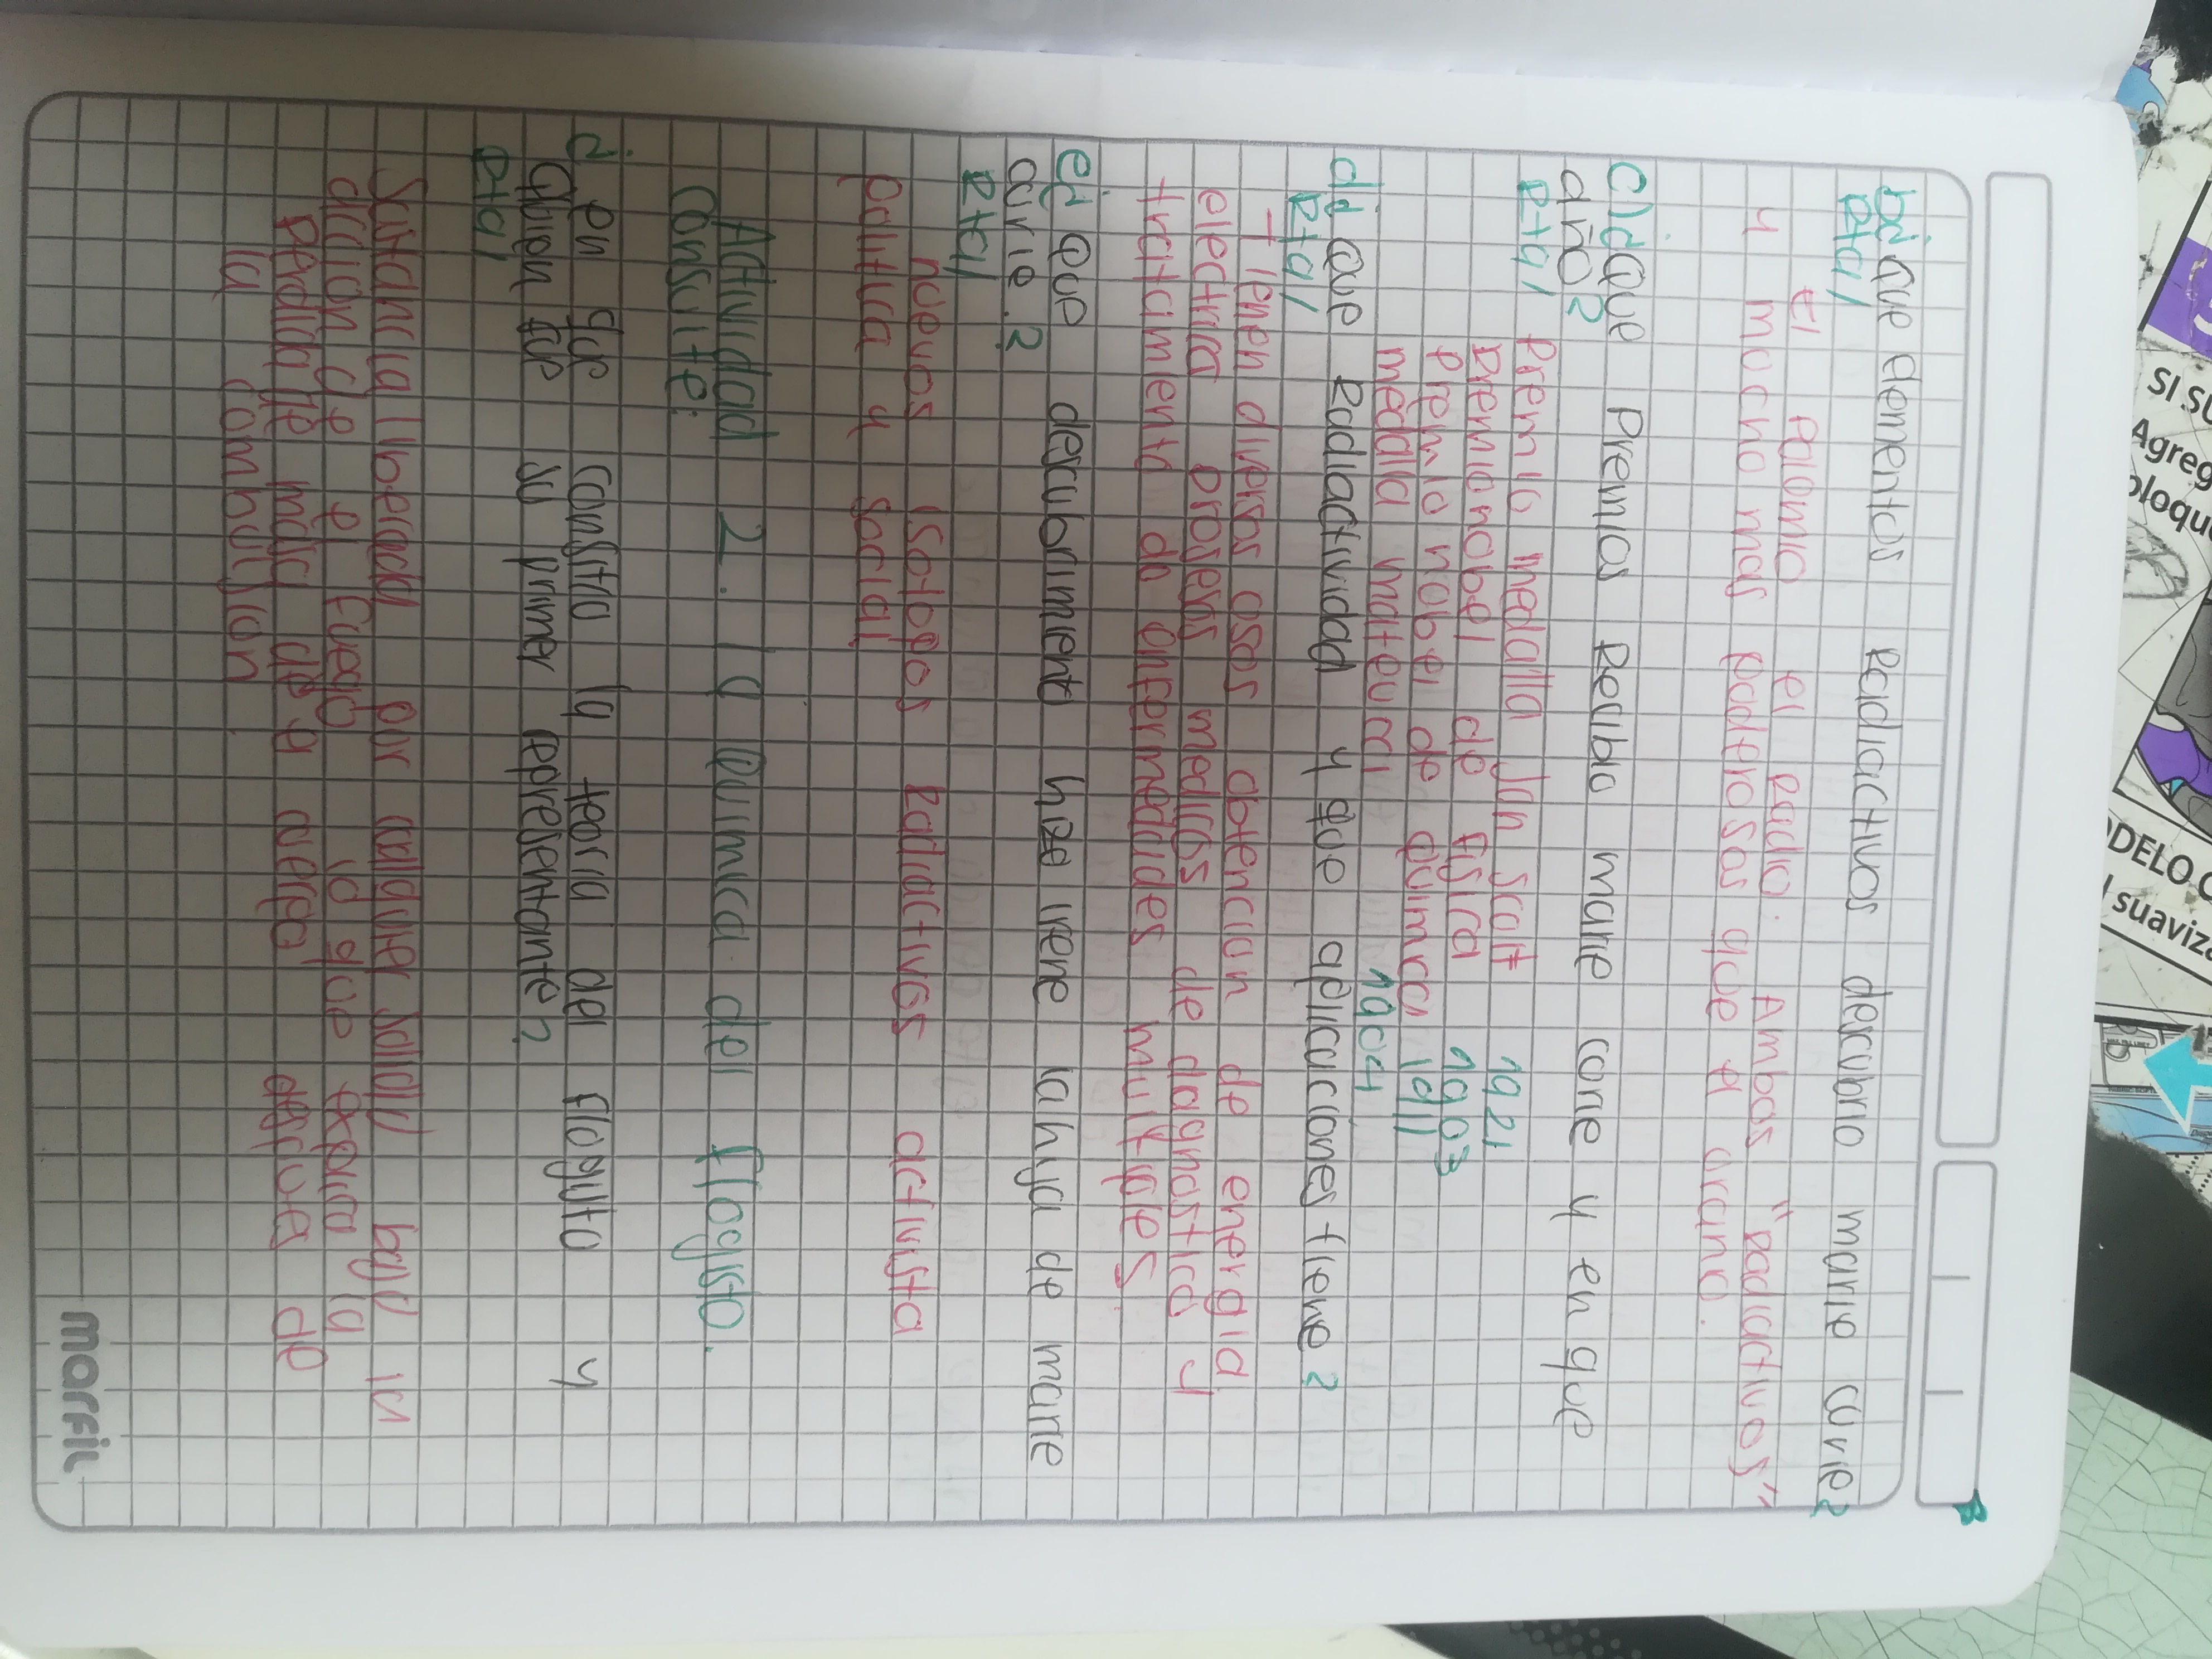 b¿ Que elementos Radiactivos descubrio marie curie?
Rta/
El Polonio el Radio. Ambos "Radiactivos"
y mucho mas poderosos que el uranio.
C) ¿Que Premios Recibio marie corie y en que
año?
Rta/ Premio medalla Jon Scott 1921
Premio nobel de fisica 1903
Premio nobel de Quimica 1911
medalla mateucci 1904
d¿ Que Radiactividad y que aplicaciones tiene?
Rta/
Tienen diversos osos obtencion de energia
electrica prosesos medicos de dagnostico y
tratamiento de enfermedades multiples
e¿ Que descubrimiento hizo irene la hija de marie
curie.?
Rta/
nuevos isotopos Radiactivos activista
politica y social
Actividad 2. la Quimica del flogisto.
Consulte:
¿ en que consitio la teoria del flogisto y
Quien fue su primer representante?
Rta/
Sustancia liberada por cualquier solido bajo la
accion de el fuego lo que explica la
perdida de de cuerpo despues de
la combustion
marfil
SI SU
Agreg
bloqu
ODELO
suaviza